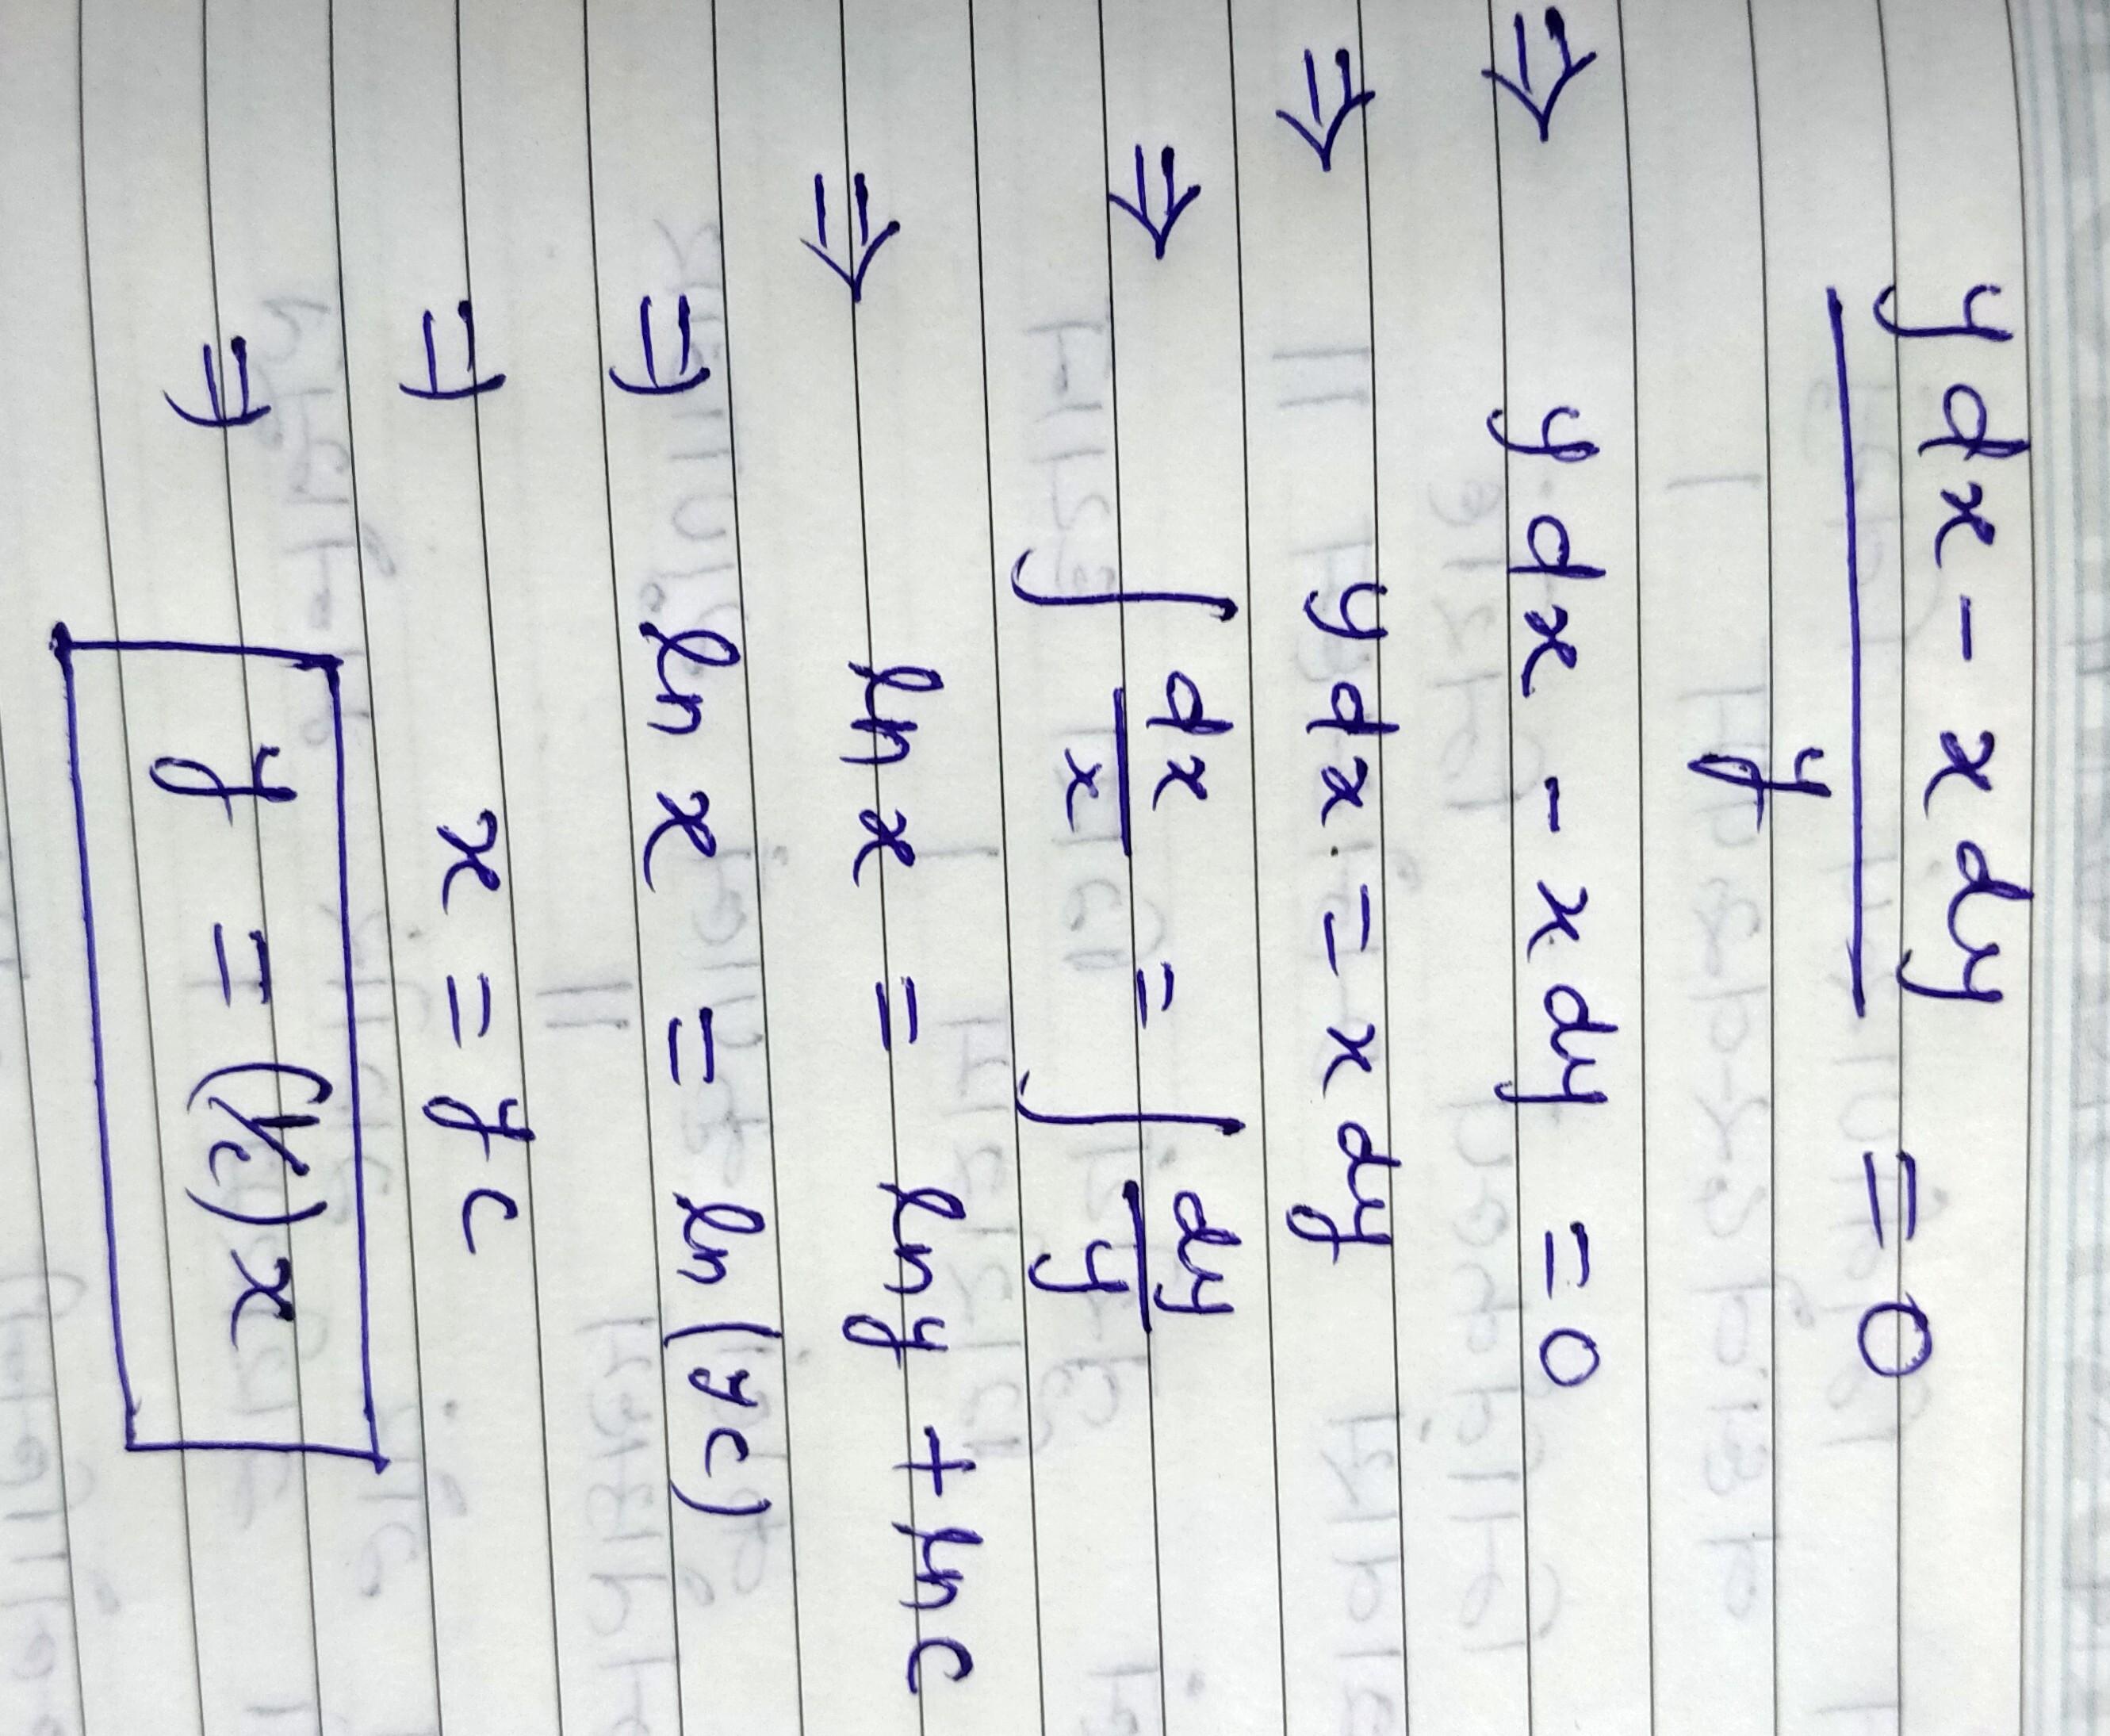 y dx - x dy / y = 0
⇒ y dx - x dy = 0
⇒ y dx = x dy
⇒ ∫ dx/x = ∫ dy/y
⇒ ln x = ln y + ln c
⇒ ln x = ln (yc)
⇒ x = yc
⇒ y = (1/c) x